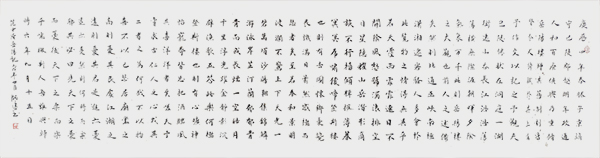 慶曆四年春滕子京謫
守巴陵郡越明年政通
人和百廢俱興乃重修
岳陽樓增其舊制刻唐
賢今人詩賦于其上屬
予作文以記之予觀夫
巴陵勝狀在洞庭一湖
銜遠山吞長江浩浩湯
湯橫無際涯朝暉夕陰
氣象萬千此則岳陽樓
之大觀也前人之述備
矣然則北通巫峽南極
瀟湘遷客騷人多會於
此覽物之情得無異乎
若夫霪雨霏霏連月不
開陰風怒號濁浪排空
日星隱耀山岳潛形商
旅不行檣傾楫摧薄暮
冥冥虎嘯猿啼登斯樓
也則有去國懷鄉憂讒
畏譏滿目蕭然感極而
悲者矣至若春和景明
波瀾不驚上下天光一
碧萬頃沙鷗翔集錦鱗
游泳岸芷汀蘭郁郁青
青而或長煙一空皓月
千里浮光躍金靜影沉
璧漁歌互答此樂何極
登斯樓也則有心曠神
怡寵辱偕忘把酒臨風
其喜洋洋者矣嗟夫予
嘗求古仁人之心或異
二者之為何哉不以物
喜不以己悲居廟堂之
高則憂其民處江湖之
遠則憂其君是進亦憂
退亦憂然則何時而樂
耶其必曰先天下之憂
而憂後天下之樂而樂
乎噫微斯人吾誰與歸
時六年九月十五日
范仲淹岳陽樓記